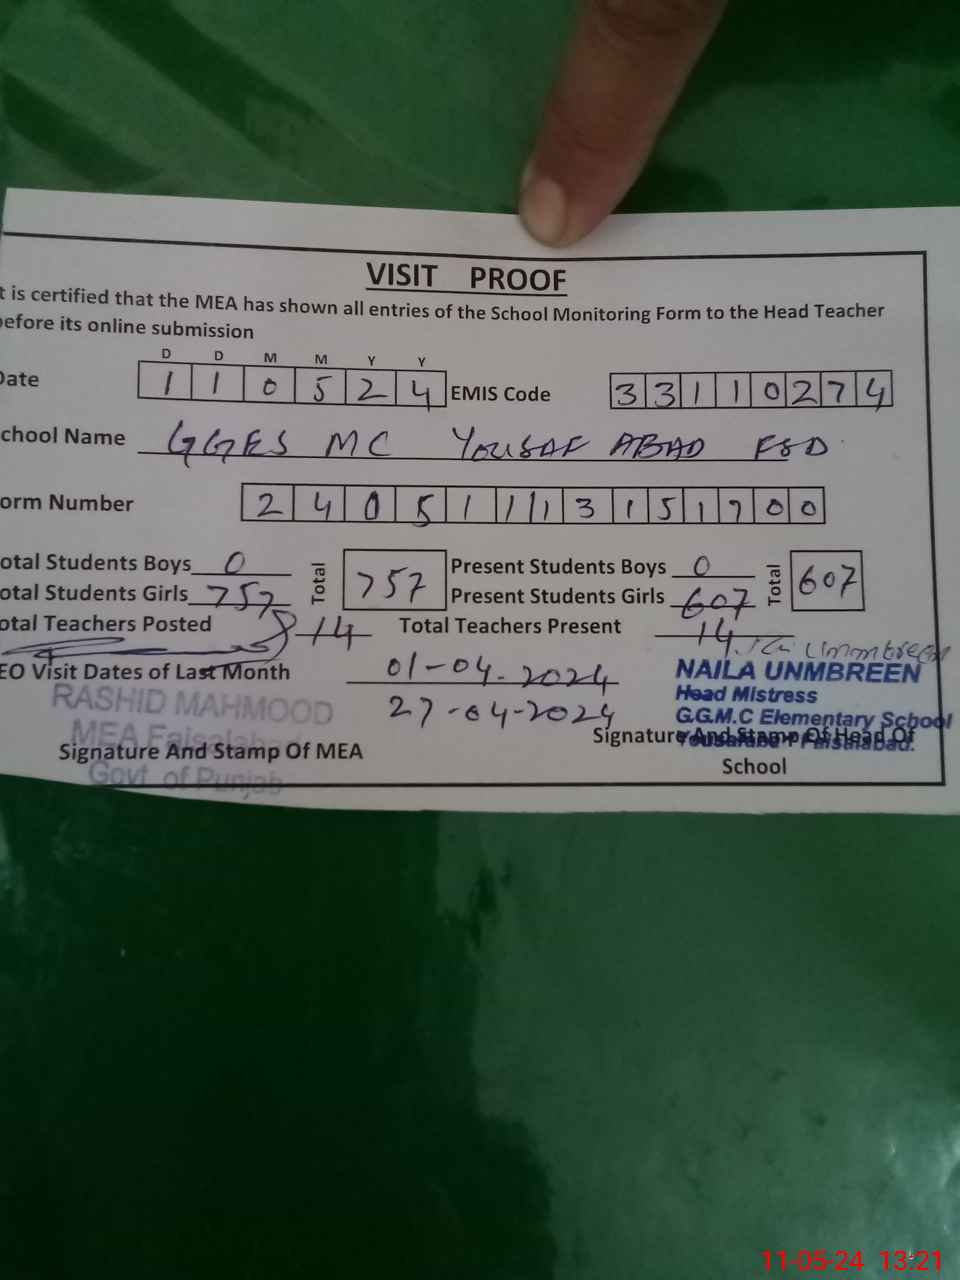 VISIT PROOF
t is certified that the MEA has shown all entries of the School Monitoring Form to the Head Teacher
before its online submission
D D M M Y Y
Date 1 1 0 5 2 4 EMIS Code 3 3 1 1 0 2 7 4
chool Name GGES MC YOUSAF ABAD FSD
orm Number 2 4 0 5 1 1 1 3 1 5 1 7 0 0
otal Students Boys 0 Total 757 Present Students Boys 0 Total 607
otal Students Girls 757 Present Students Girls 607
otal Teachers Posted 14 Total Teachers Present 14
Unmbreen
EO Visit Dates of Last Month 01-04-2024
27-04-2024
NAILA UNMBREEN
Head Mistress
G.G.M.C Elementary School
Faisalabad.
RASHID MAHMOOD
MEA Faisalabad
Govt of Punjab
Signature And Stamp Of MEA
Signature And Stamp Of Head Of
School
11-05-24 13:21